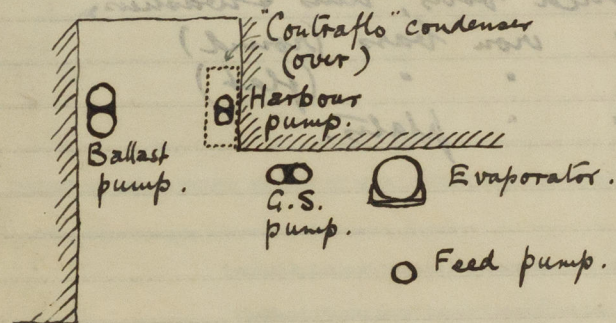 "Contraflo" condenser
(over)
Harbour
pump.
Ballast
pump.
G.S.
pump.
Evaporator.
Feed pump.